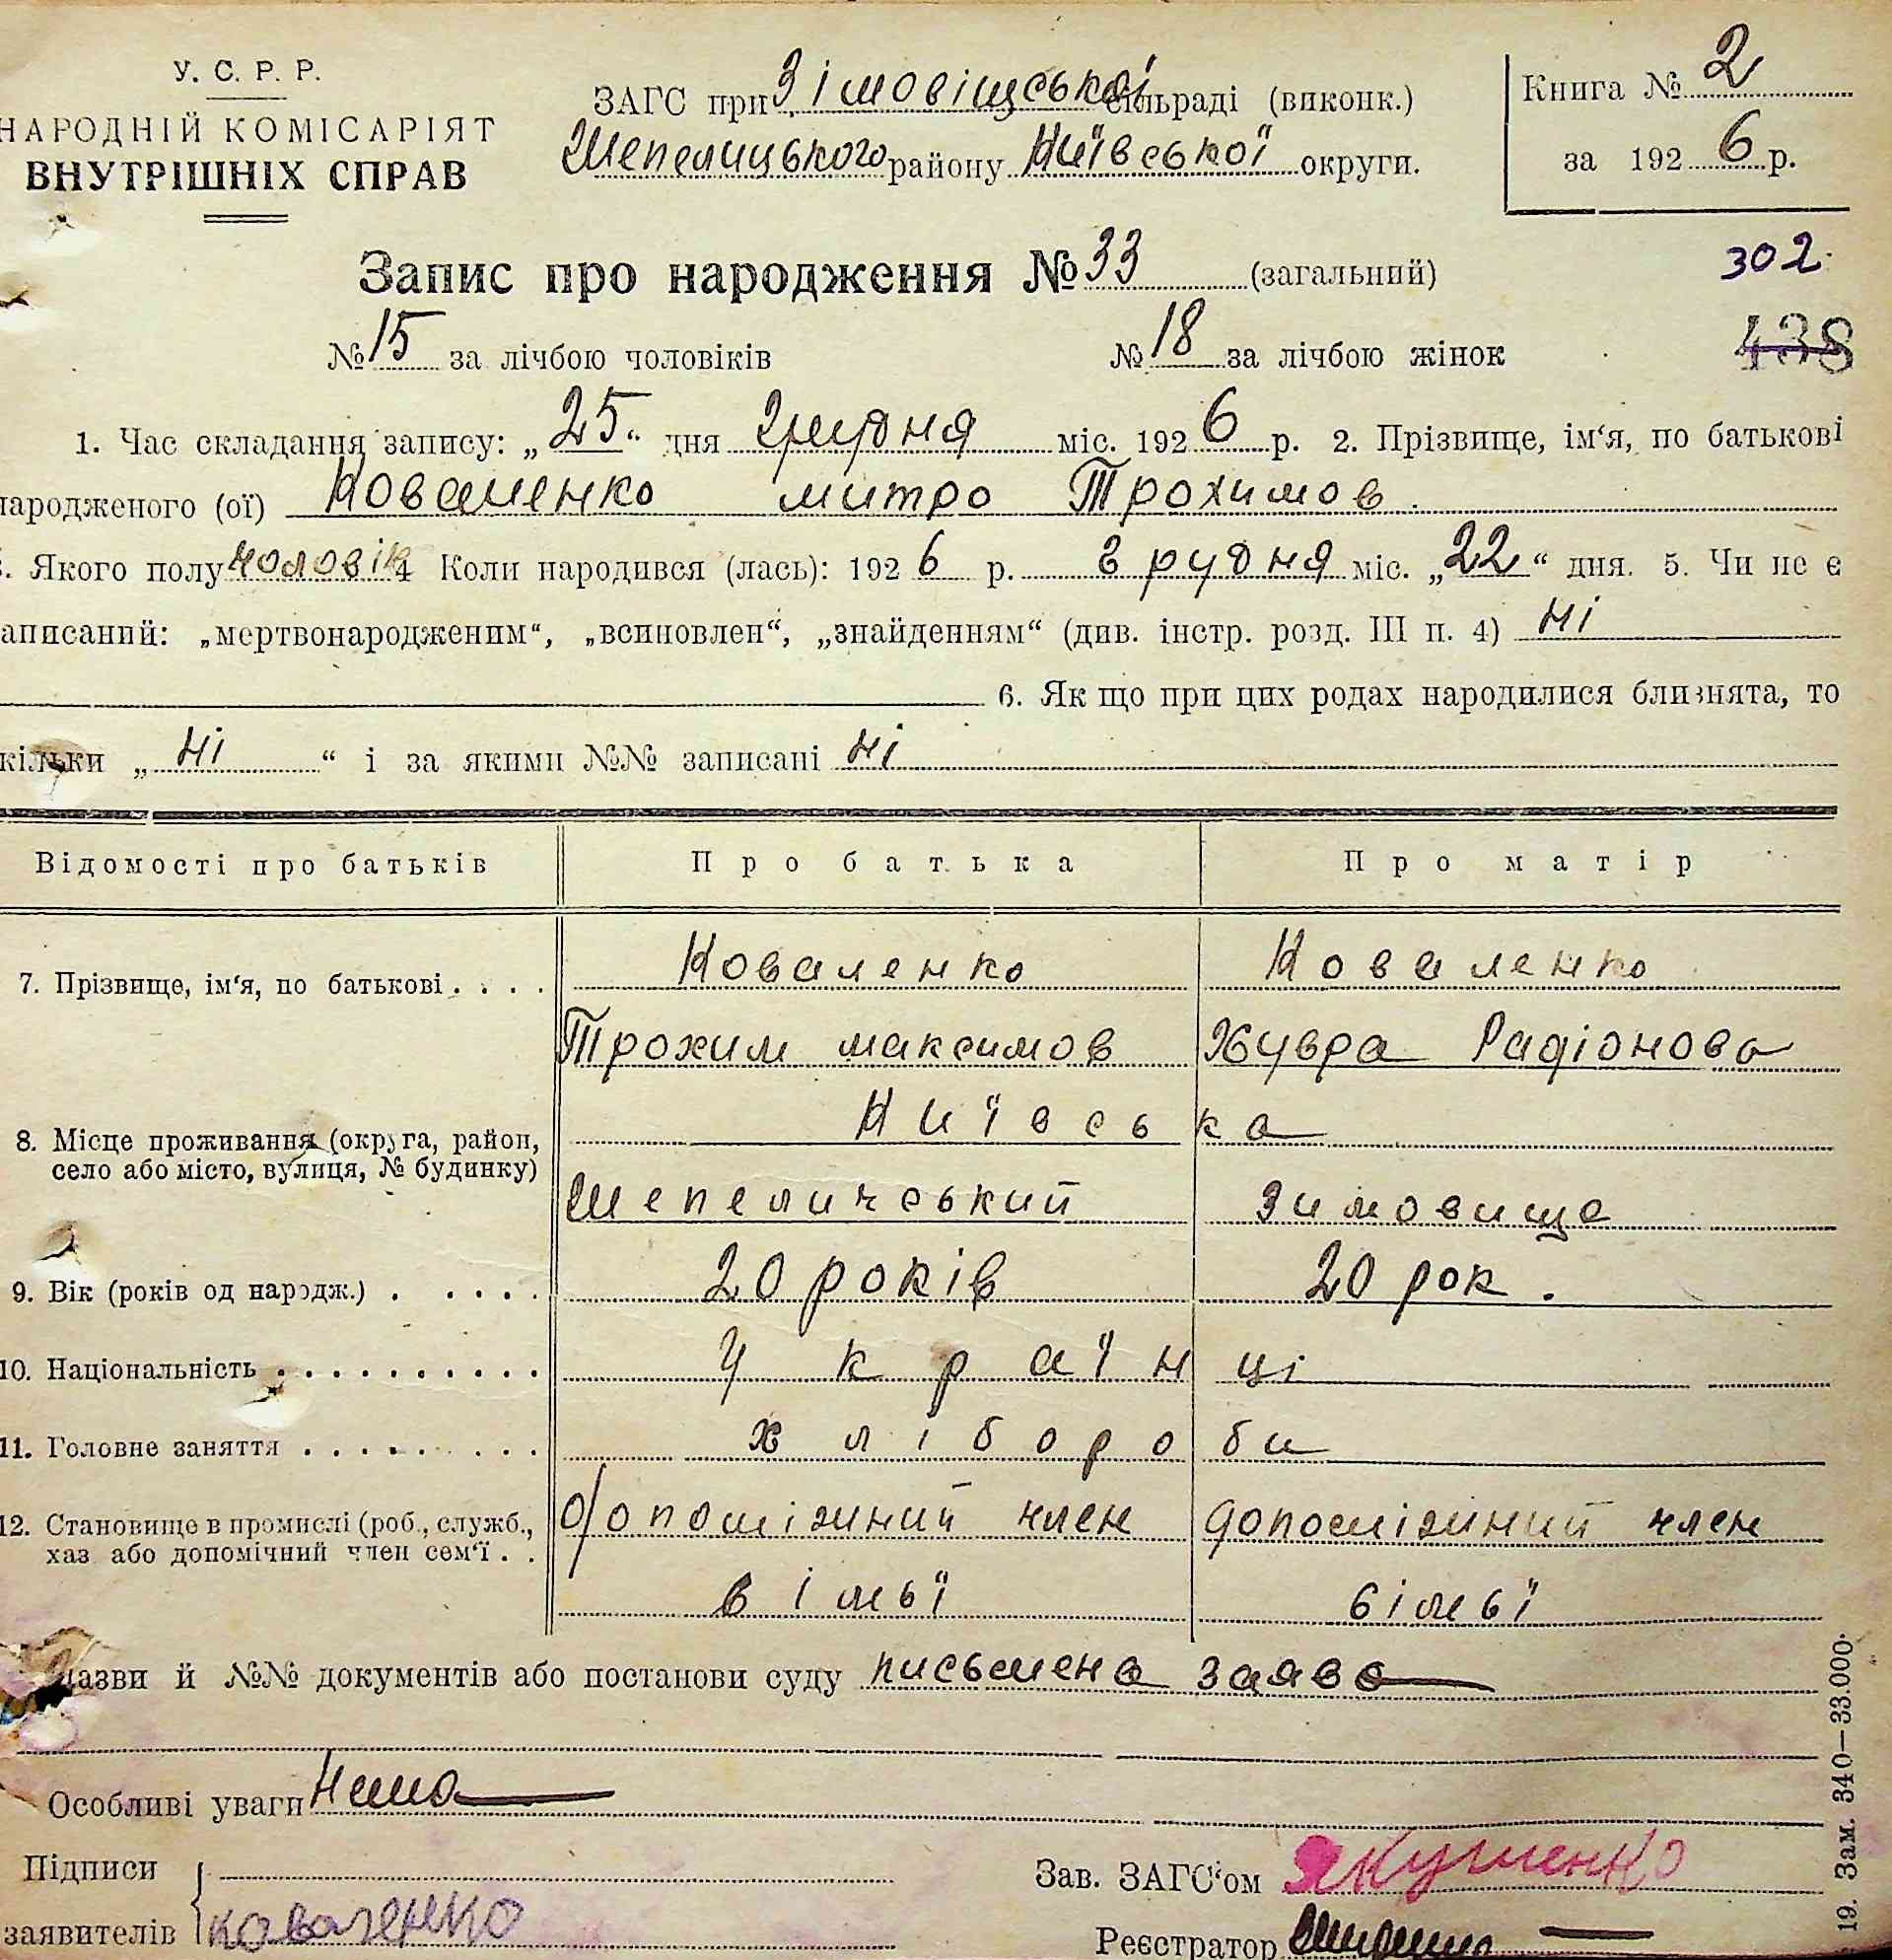 У. С. Р. Р.
НАРОДНІЙ КОМІСАРІЯТ
ВНУТРІШНІХ СПРАВ
ЗАГС при Зімовіщської сільраді (виконк.)
Шепелицького району Київської округи.
Книга № 2
за 1926 р.
Запис про народження № 33 (загальний)
302
№ 15 за лічбою чоловіків № 18 за лічбою жінок
438
1. Час складання запису: „25“ дня грудня міс. 1926 р. 2. Прізвище, ім‘я, по батькові
народженого (ої) Коваленко митро Трохимов
. Якого полу чоловік 4 Коли народився (лась): 1926 р. грудня міс. „22“ дня. 5. Чи не є
аписаний: „мертвонародженим“, „всиновлен“, „знайденням“ (див. інстр. розд. III п. 4) ні
6. Як що при цих родах народилися близнята, то
кільки „ні“ і за якими №№ записані ні
Відомості про батьків Про батька Про матір
7. Прізвище, ім‘я, по батькові . . . . Коваленко Коваленко
Трохим максимов Хувра Радіонова
8. Місце проживання (округа, район, Київська
село або місто, вулиця, № будинку) Шепеличський Зимовище
9. Вік (років од народж.) . . . . . 20 років 20 рок.
10. Національність . . . . . . . . . . Українці
11. Головне заняття . . . . . . . . . хлібороби
12. Становище в промислі (роб., служб., допоміжний член допоміжний член
хаз або допомічний член сем‘ї . .
вімьї вімьї
Назви й №№ документів або постанови суду письмена заява
Особливі уваги Нема
Підписи
заявителів Коваленко
Зав. ЗАГС‘ом Якушенко
Реєстратор
19. Зам. 340—33.000.